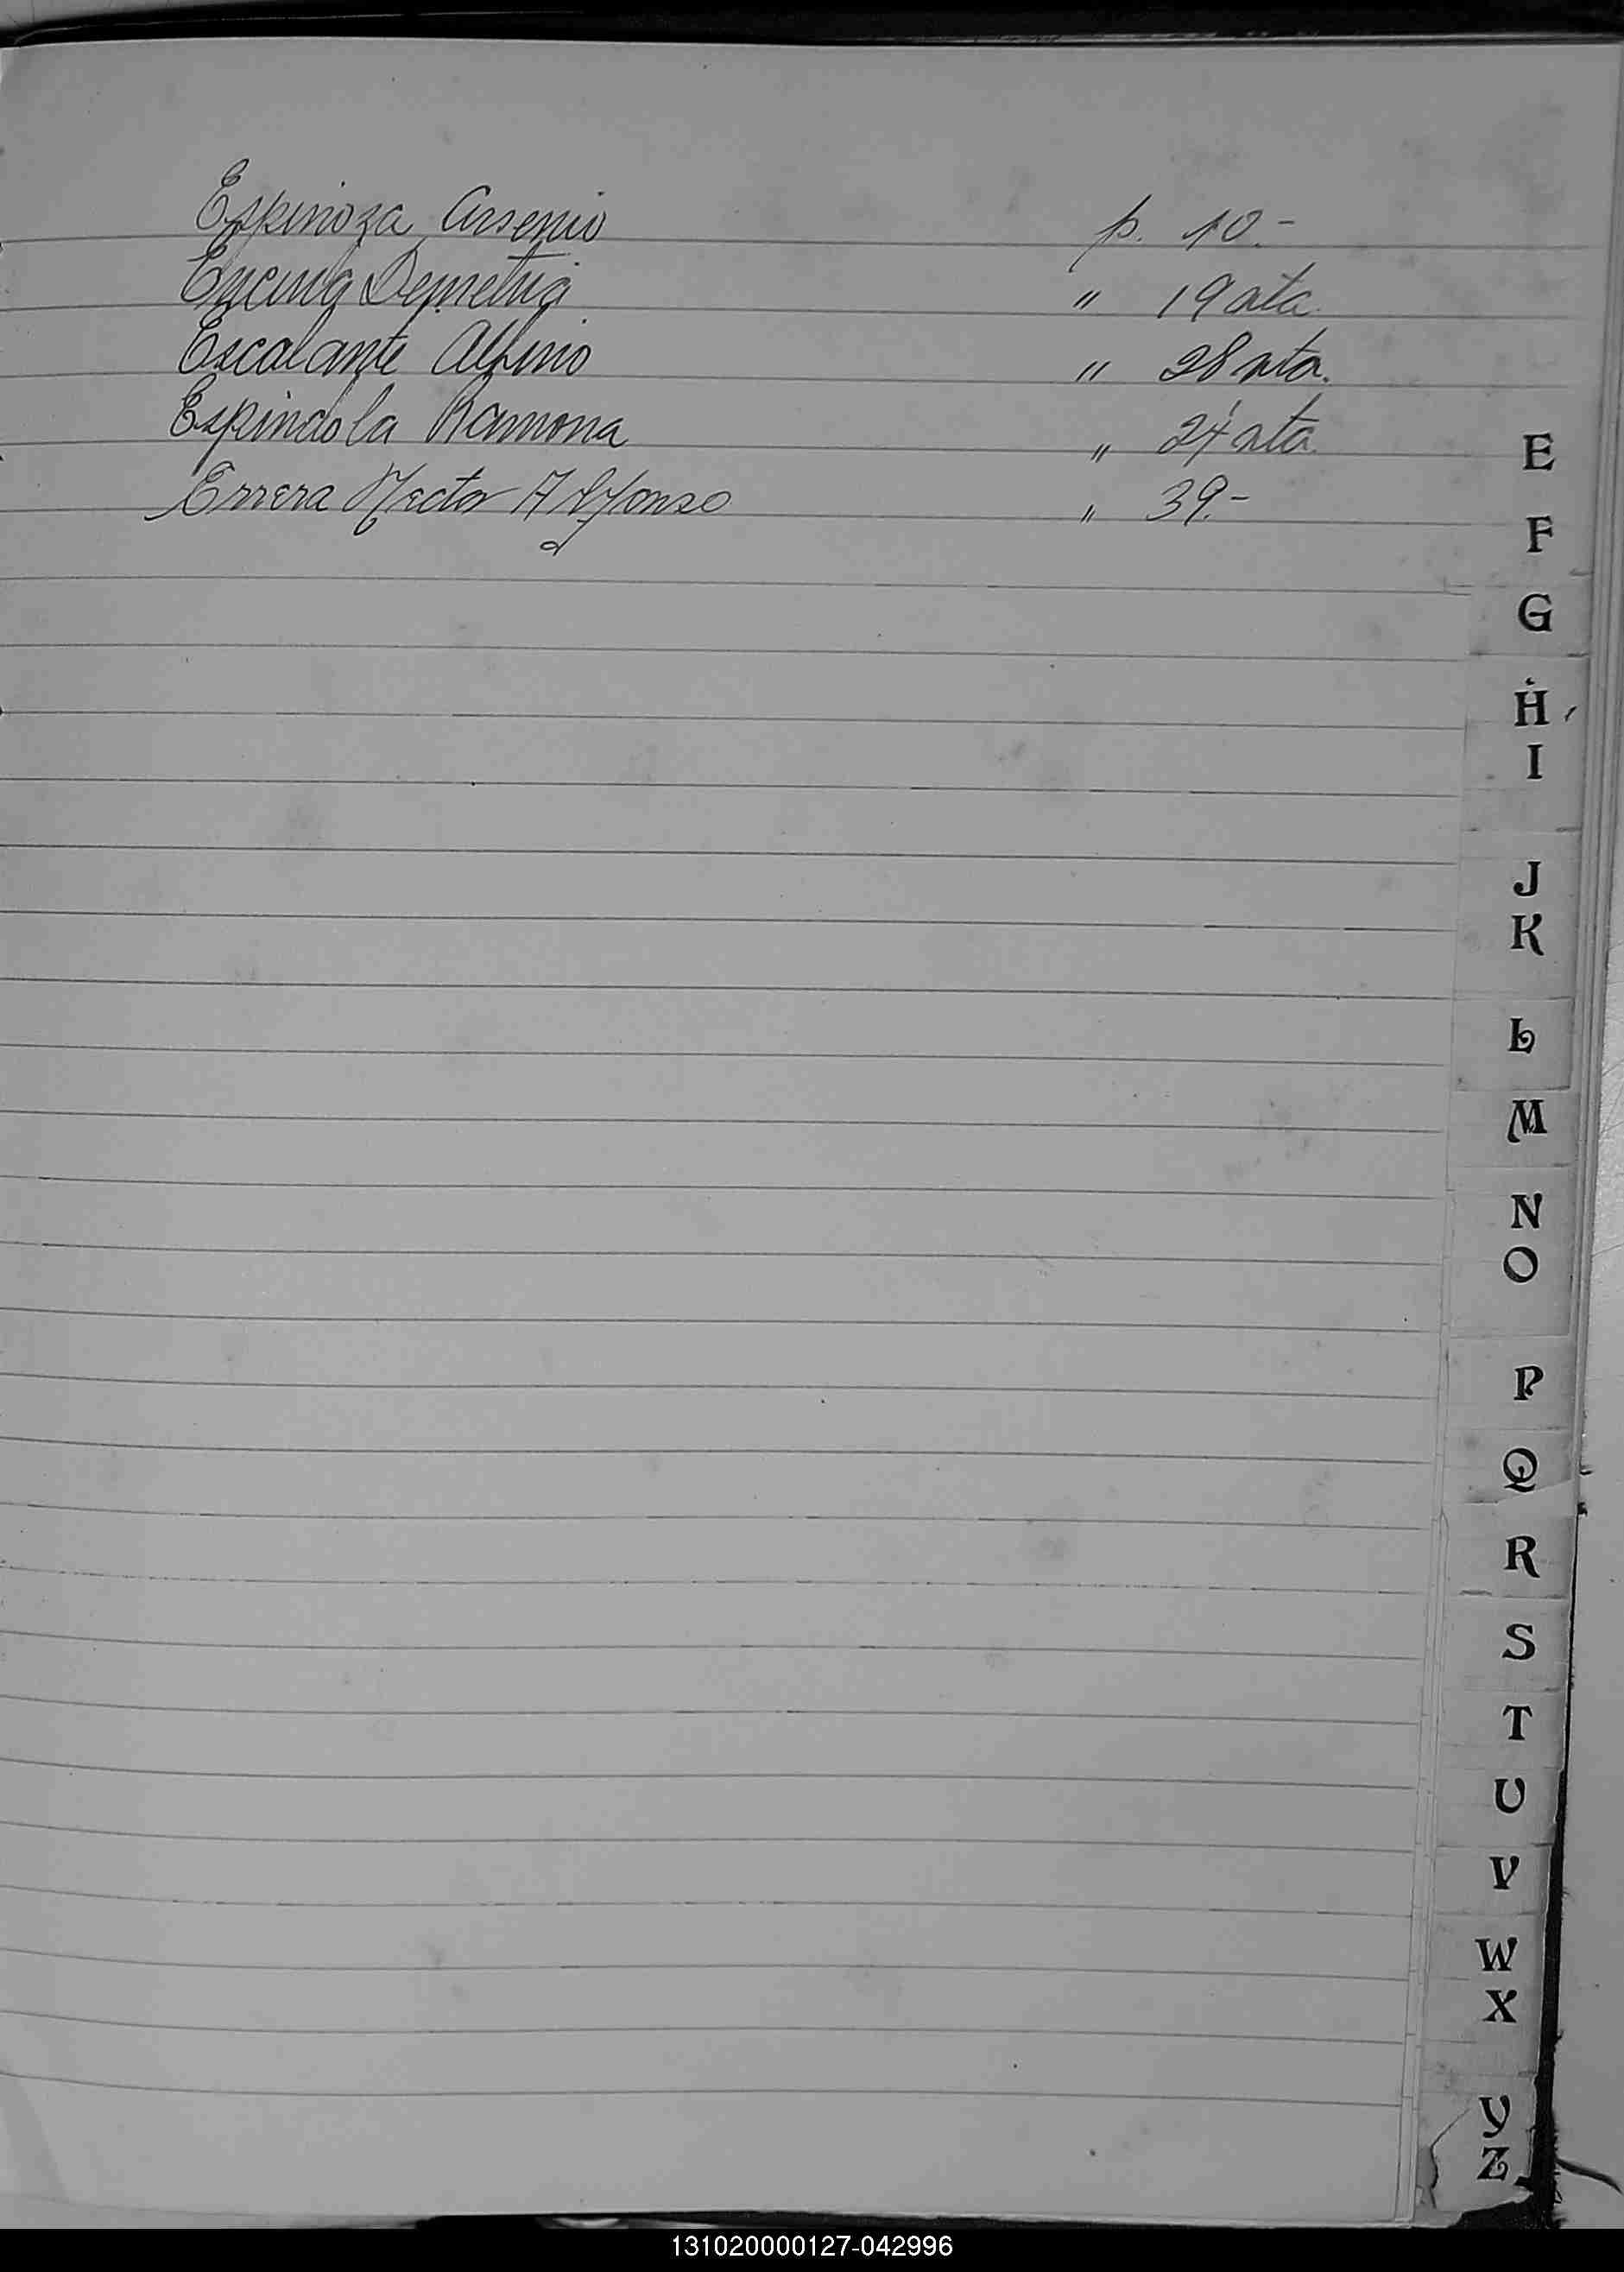 Espinoza Arsenio p. 10.-
Encina Demetria " 19 vta.
Escalante Albino " 28 vta.
Espindola Ramona " 24 vta.
Errera Hector Alfonso " 39.-
E
F
G
H
I
J
K
L
M
N
O
P
Q
R
S
T
U
V
W
X
Y
Z
131020000127-042996